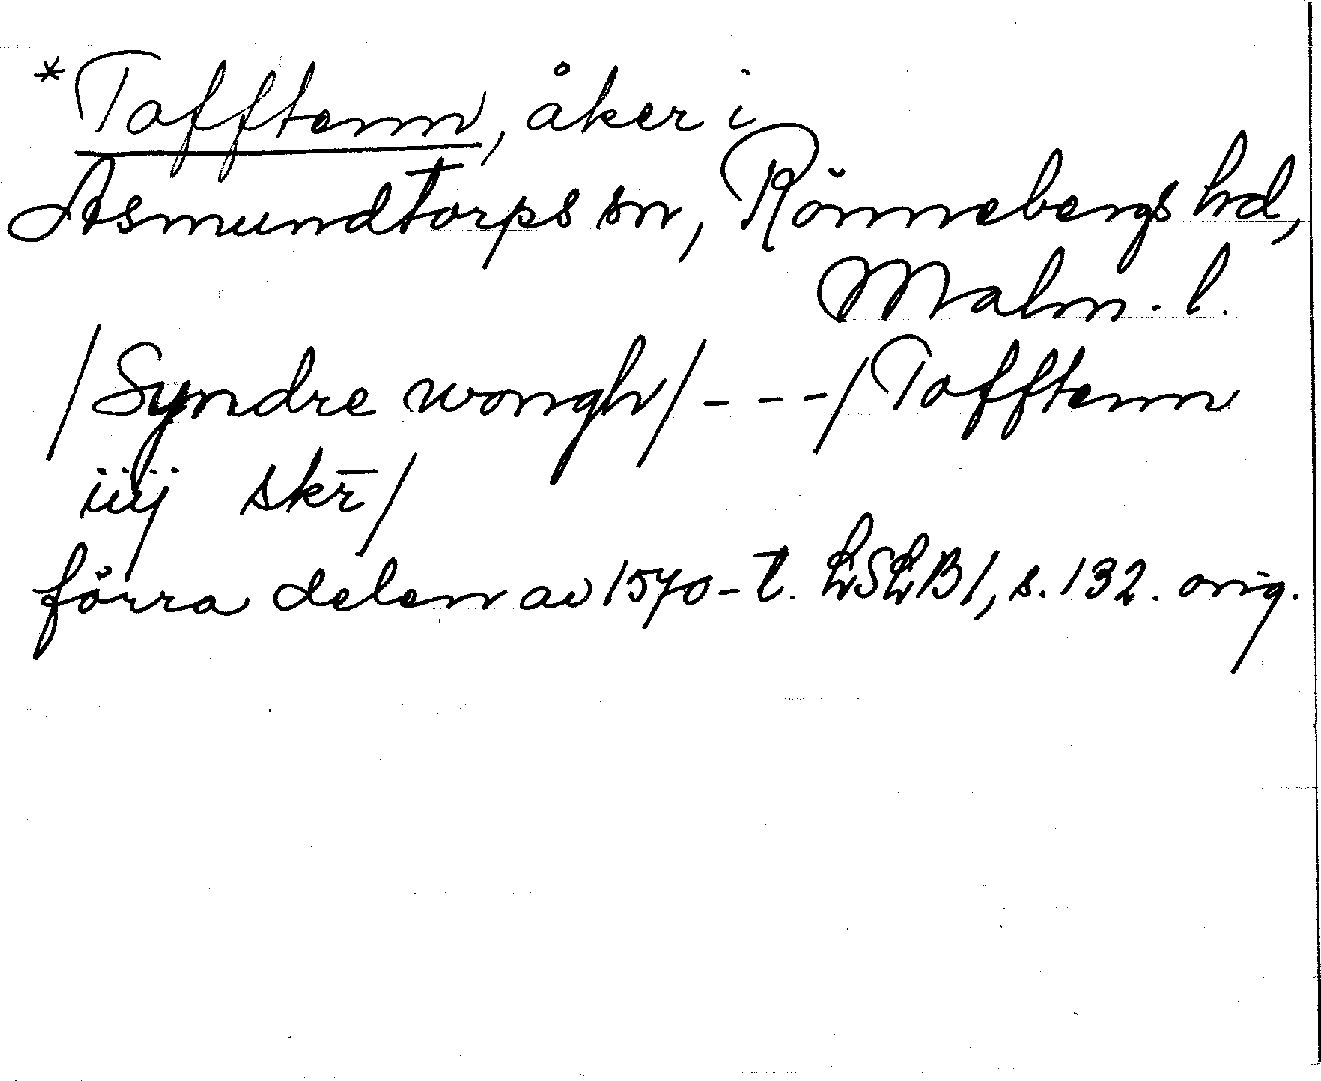 *Tafftenn, åker i
Asmundtorps sn, Rönnebergs hd,
Malm. l.
/Syndre wongh/ - - - /Tafftenn
iiij skr̄/
förra delen av 1570-t. LSLB1, s. 132. orig.